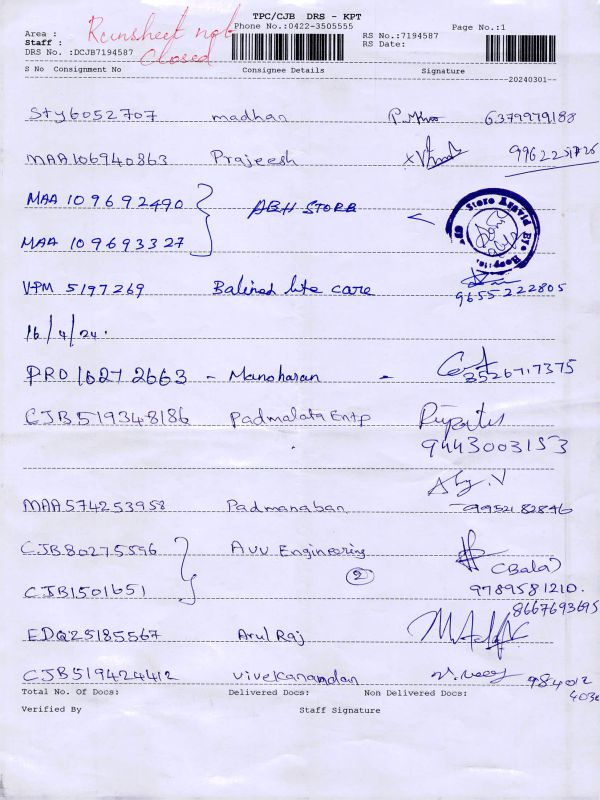 TPC/CJB DRS - KPT
Phone No.:0422-3505555
Page No.:1
Area : Runsheet not
RS No.:7194587
Staff : Closed
RS Date:
DRS No. :DCJB7194587
S No Consignment No Consignee Details Signature
20240301
Sty6052707 madhan 6379979188
MAA106940863 Prajeesh
MAA 109692490 ABH STORE
MAA 109693327
VPM 5197269 Balined lite care 9655-222805
16/4/24.
PRO 16272663 - Manoharan -
CJB519348186 Padmalata Entp 9443003153
MAA574253958 Padmanaban 9952182846
CJB80275596 Avv Engineering (Bala)
2
CJB1501651 9789581210.
8667693695
EDQ25185567 Arul Raj
CJB519424412 Vivekanandan 984012
Total No. Of Docs: Delivered Docs: Non Delivered Docs:
Verified By Staff Signature